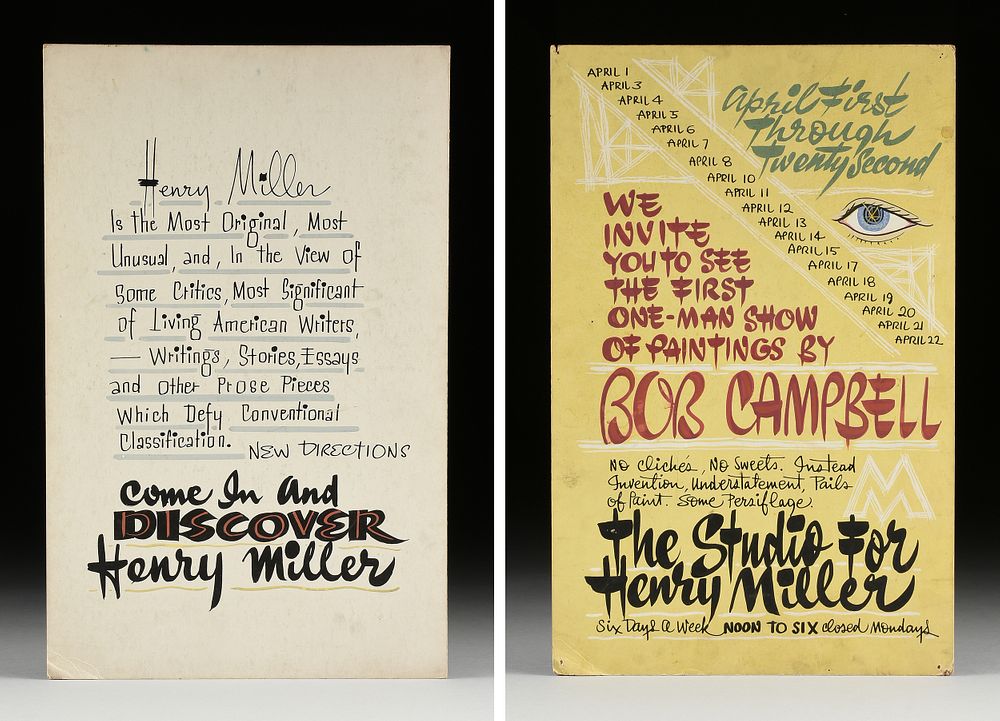 Henry Miller
Is the Most Original, Most
Unusual, and, In the View of
Some Critics, Most Significant
of Living American Writers,
— Writings, Stories, Essays
and Other Prose Pieces
Which Defy Conventional
Classification. NEW DIRECTIONS
Come In And
DISCOVER
Henry Miller
APRIL 1
APRIL 3
APRIL 4
APRIL 5
APRIL 6
APRIL 7
APRIL 8
APRIL 10
APRIL 11
APRIL 12
APRIL 13
APRIL 14
APRIL 15
APRIL 17
APRIL 18
APRIL 19
APRIL 20
APRIL 21
APRIL 22
April First
Through
Twenty Second
WE
INVITE
YOU TO SEE
THE FIRST
ONE-MAN SHOW
OF PAINTINGS BY
BOB CAMPBELL
No Clichés, No Sweets. Instead
Invention, Understatement, Pails
of Paint. Some Persiflage.
M
M
The Studio For
Henry Miller
Six Days A Week NOON TO SIX closed Mondays